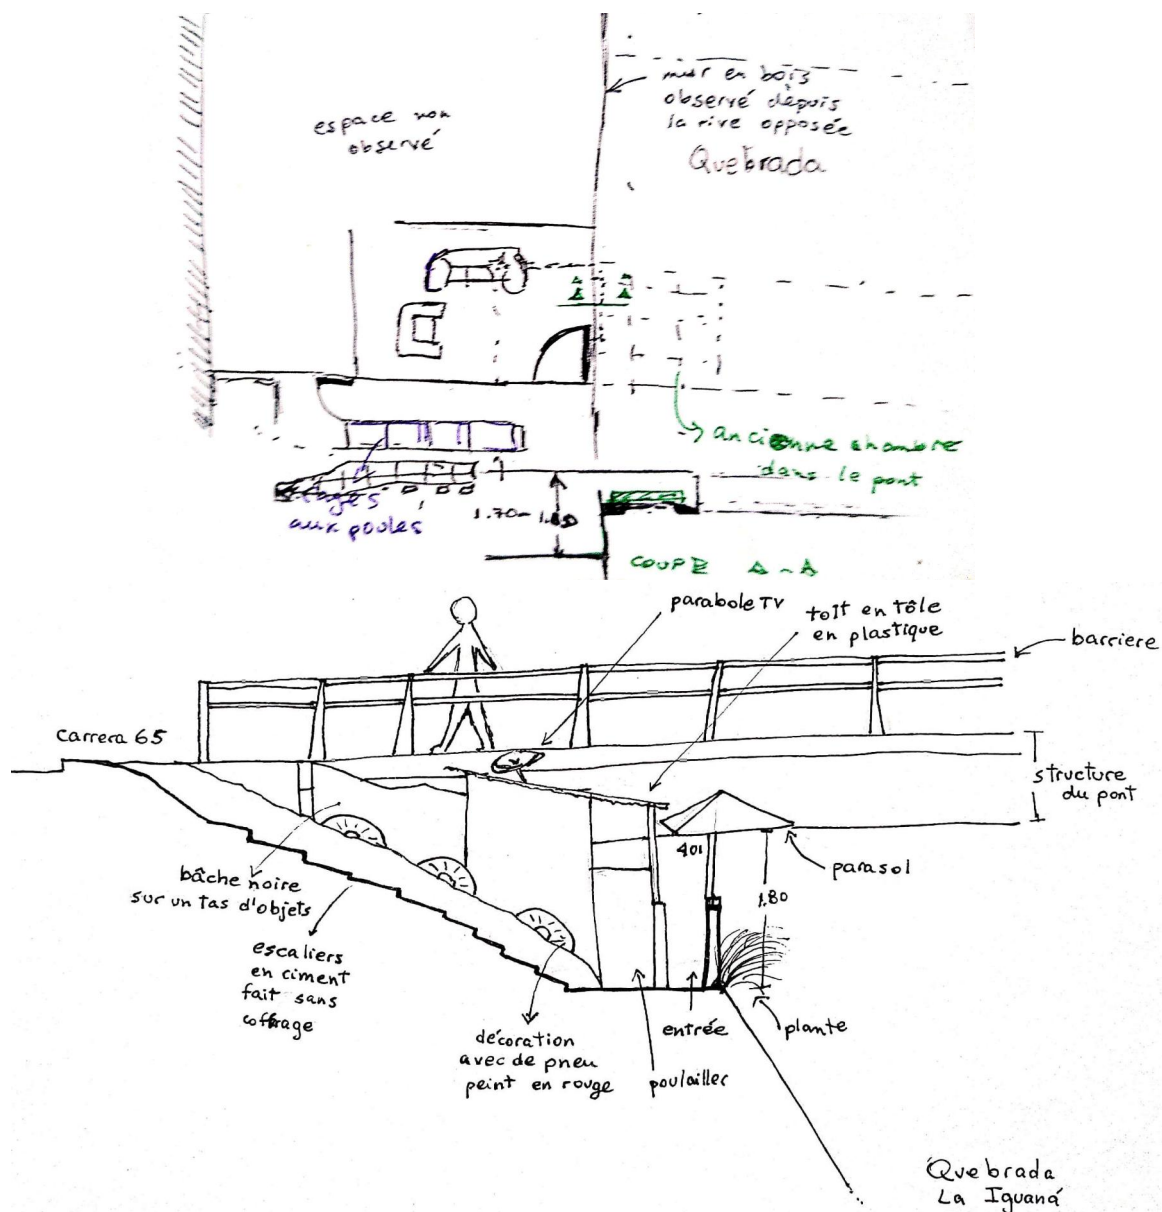 espace non
observé
mur en bois
observé depuis
la rive opposée
Quebrada
A A
A A
ancienne chambre
dans le pont
aux poules
COUPE A-A
parabole TV
toit en tôle
en plastique
barriere
carrera 65
structure
du pont
401
parasol
1.80
bâche noire
sur un tas d'objets
escaliers
en ciment
fait sans
coffrage
décoration
avec de pneu
peint en rouge
poulailler
entrée
plante
Quebrada
La Iguaná